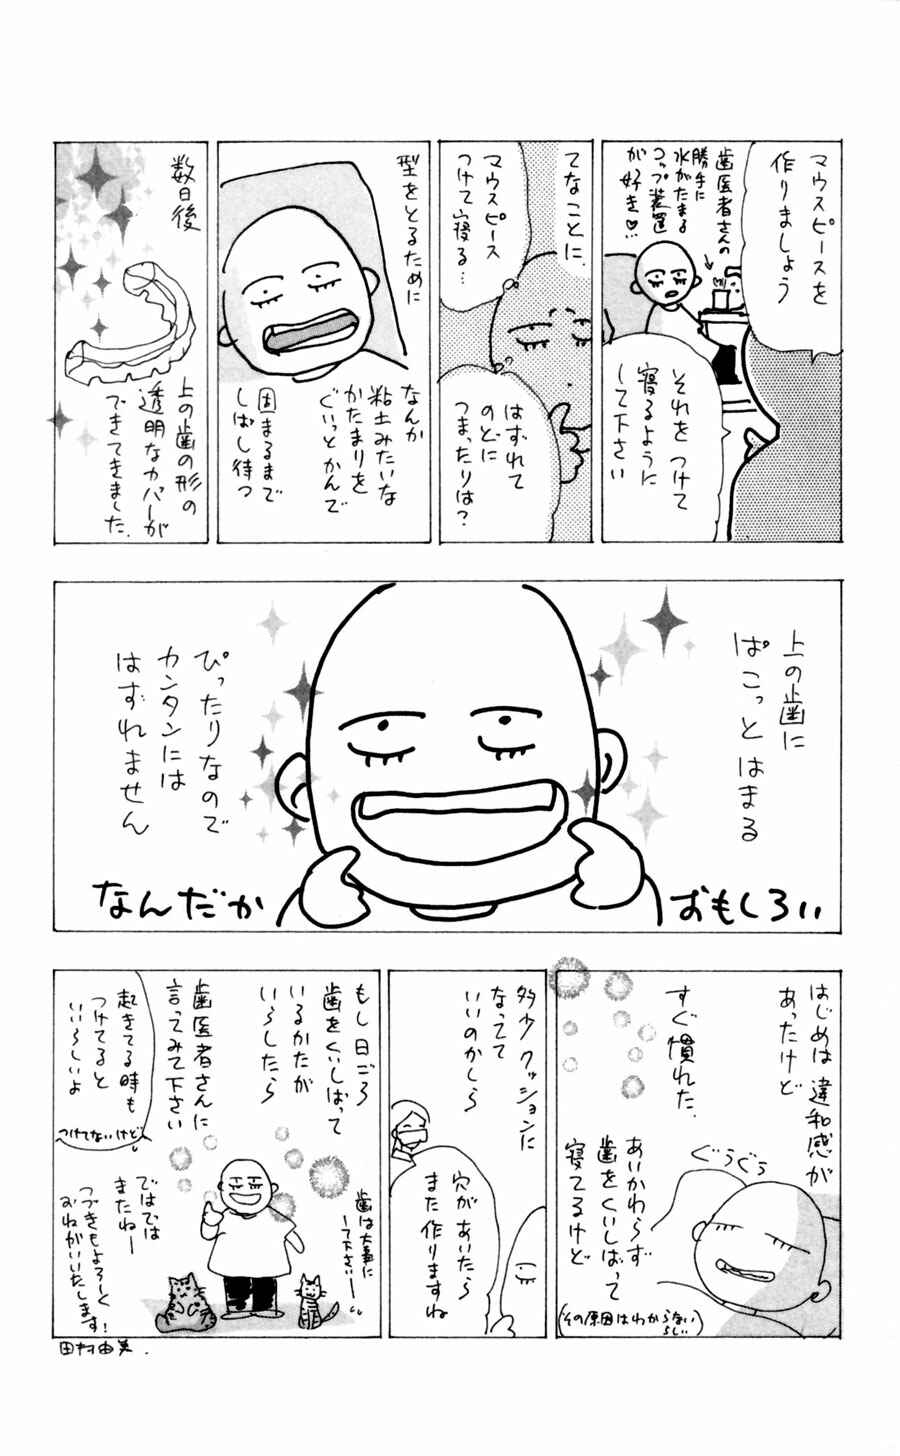 マウスピースを
作りましょう
歯医者さんの
勝手に
水がたまる
コップ装置
が好き♡
それをつけて
寝るように
して下さい
てなことに
マウスピース
つけて寝る…
はずれて
のどに
つまったりは?
型をとるために
なんか
粘土みたいな
かたまりを
ぐいっとかんで
固まるまで
しばし待つ
数日後
上の歯の形の
透明なカバーが
できてきました.
上の歯に
ぱこっとはまる
ぴったりなので
カンタンには
はずれません
なんだか
おもしろい
はじめは違和感が
あったけど
すぐ慣れた.
ぐうぐう
あいかわらず
歯をくいしばって
寝てるけど
(その原因はわからない
らしい)
多少クッションに
なってて
いいのかしら
穴があいたら
また作りますね
もし日ごろ
歯をくいしばって
いるかたが
いらしたら
歯医者さんに
言ってみて下さい
起きてる時も
つけてると
いいらしいよ
つけてないけど。
歯は大事に
して下さいーー
ではでは
またねー
つづきもよろーく
おねがいいたします!
田村由美.